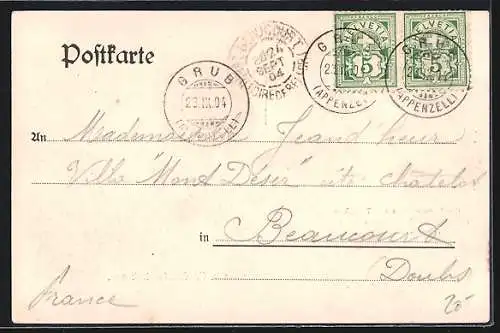 Postkarte
HELVETIA HELVETIA
5 5
GRUB
(APPENZELL)
GRUB
(APPENZELL)
BEAUCOURT
24
SEPT
04
GRUB
23.IX.04
(APPENZELL)
An Mademoiselle
Villa "Mont Désir" cité châtelot
in Beaucourt
Doubs
France